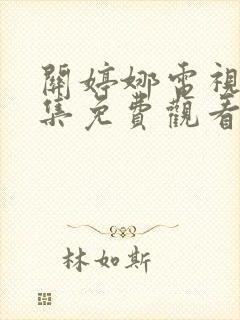 關婷娜電視
集免費觀看
林如斯